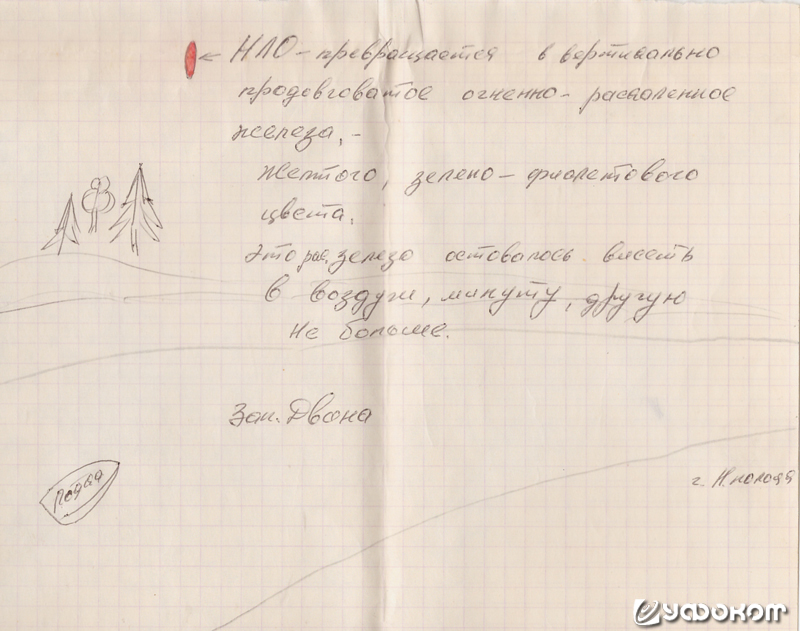 НЛО - превращается в вертикально
продовговатое огненно-распаленное
железа, -
желтого, зелено-фиолетового
цвета.
это рас. зелезо оставалось висеть
в воздухи, минуту, другую
не больше.
Зап. Двина
г. Н.полоцк
лодка
уфоком